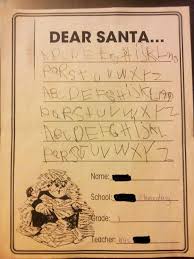 DEAR SANTA...
ABCDEFGHIJKLmn
PQRSTUVWXYZ
ABCDEFGHIJKLm
PQRSTUVWXYZ
ABCDEFGHIJKLm
PQRSTUVWXYZ
Name:
School: Elementary
Grade: 1
Teacher: